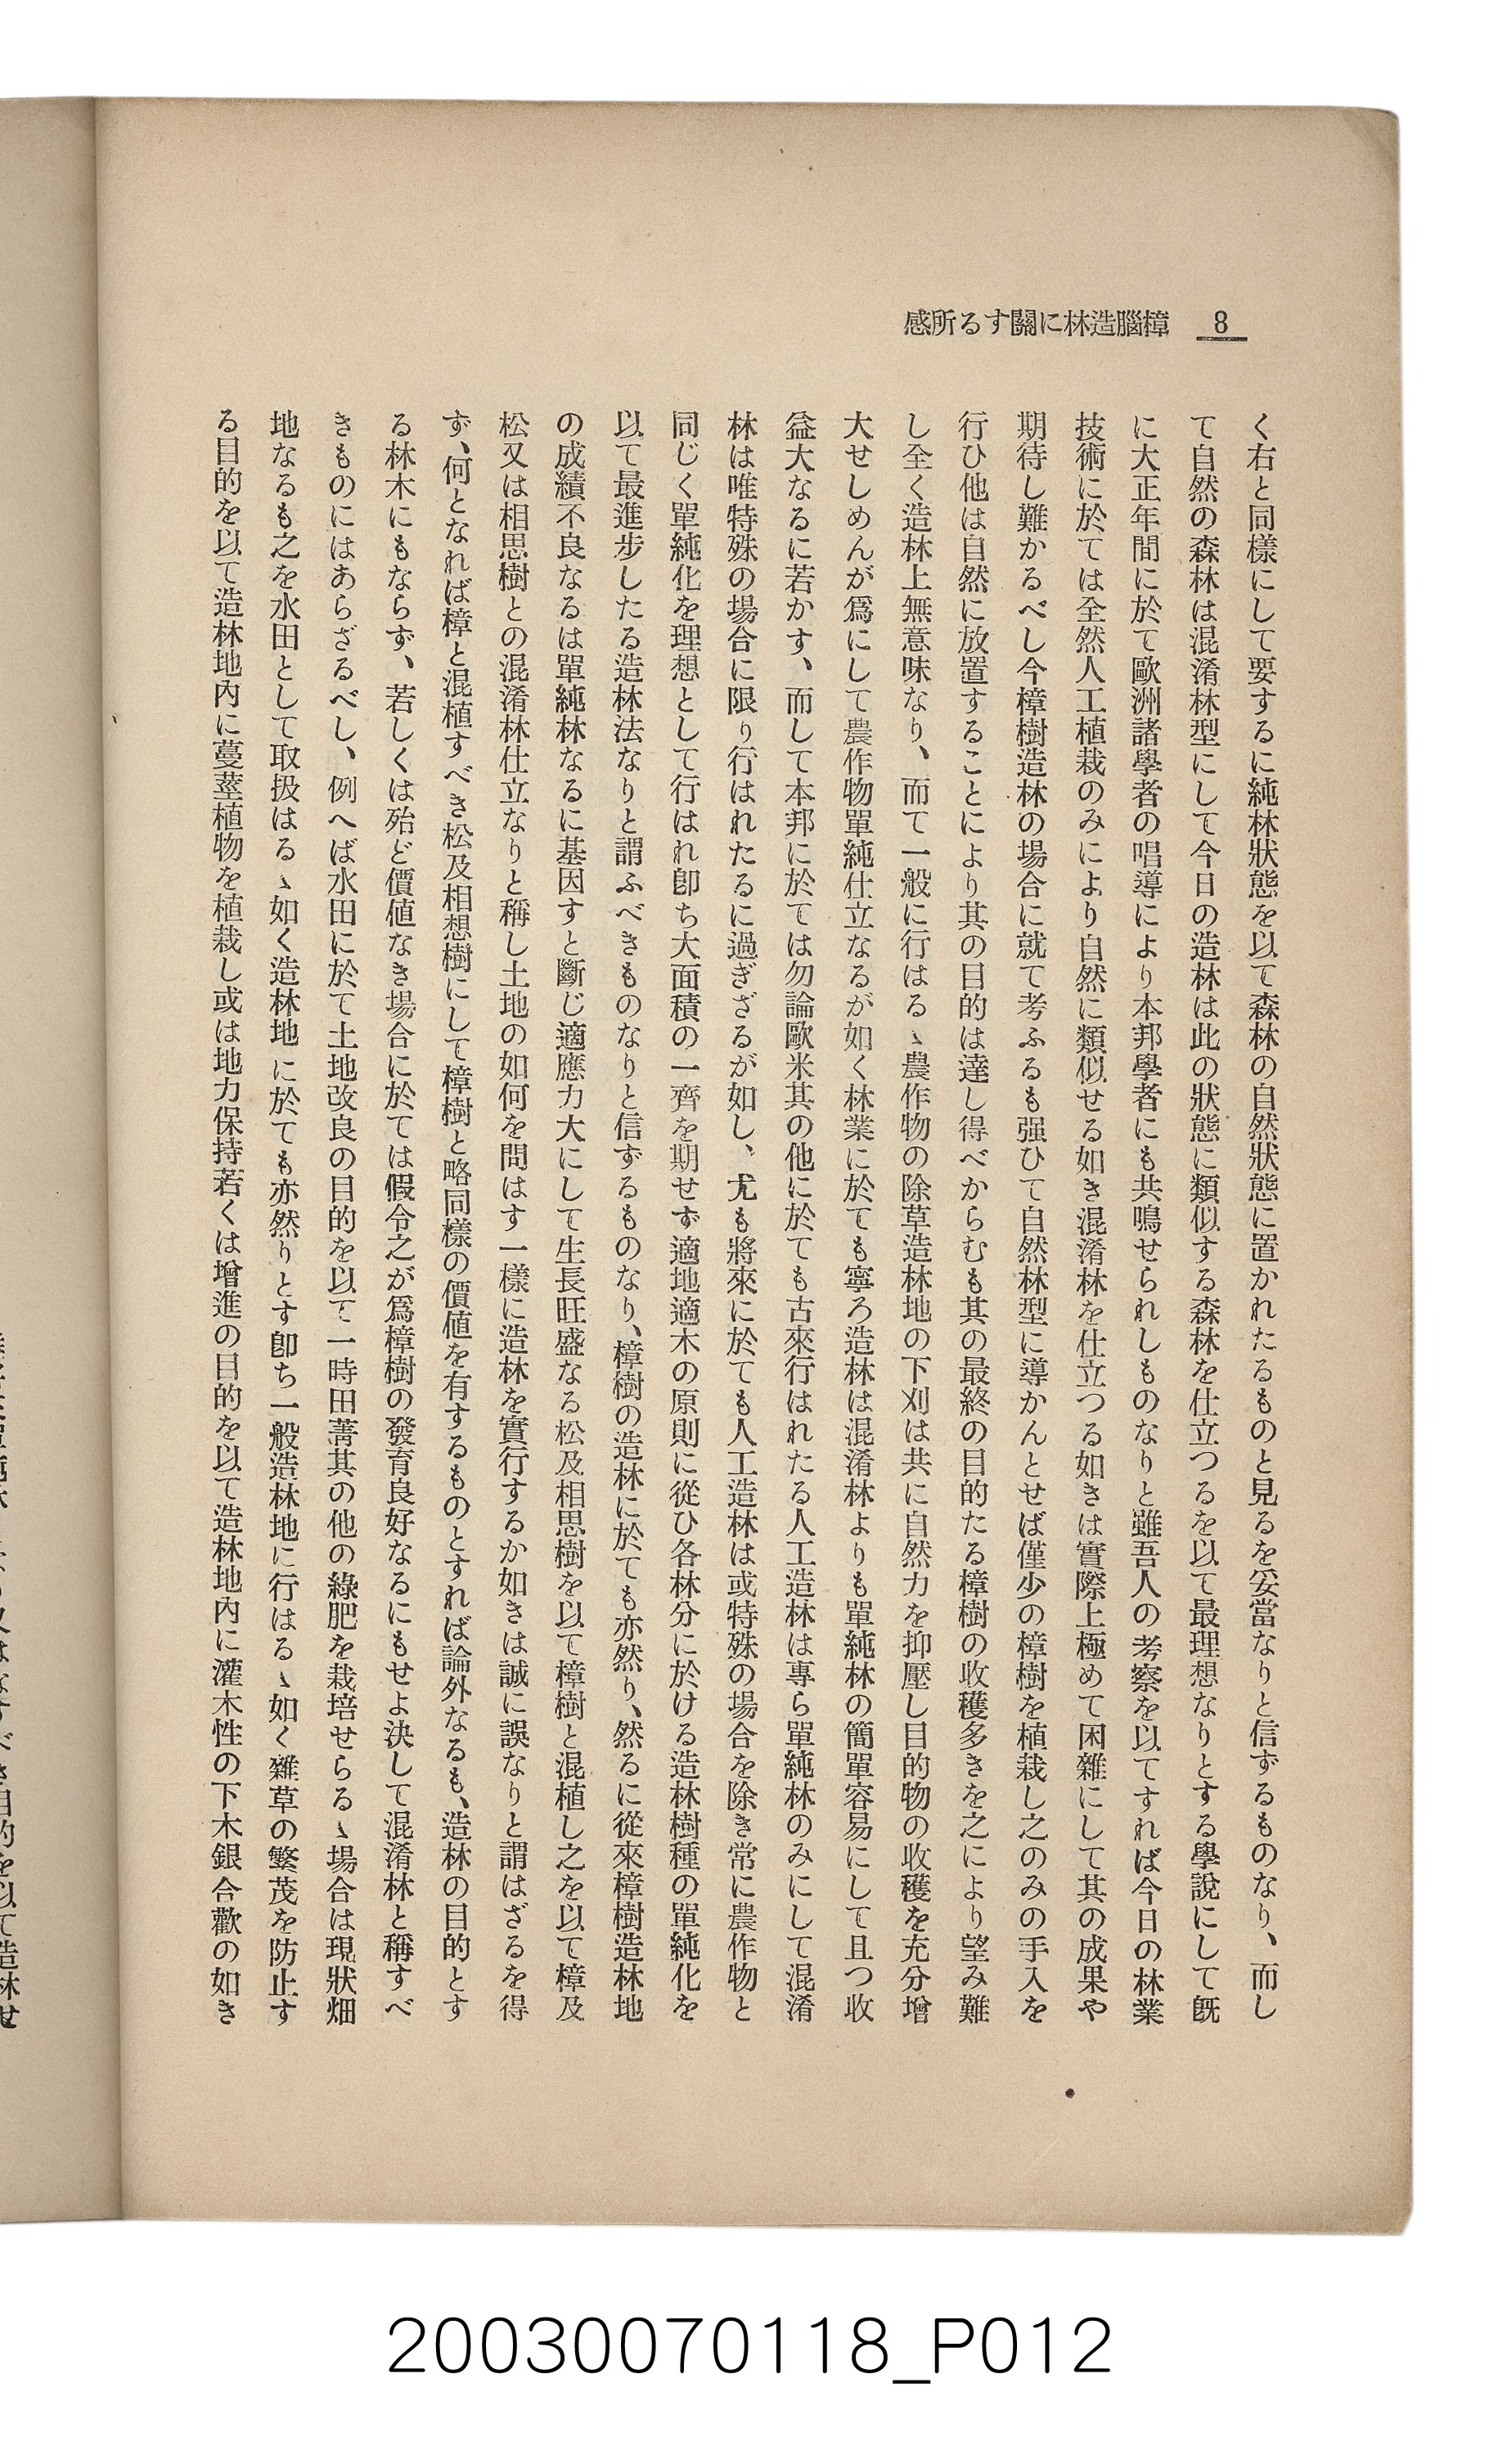 8 樟腦造林に關する所感
く右と同樣にして要するに純林狀態を以て森林の自然狀態に置かれたるものと見るを妥當なりと信ずるものなり、而し
て自然の森林は混淆林型にして今日の造林は此の狀態に類似する森林を仕立つるを以て最理想なりとする學說にして既
に大正年間に於て歐洲諸學者の唱導により本邦學者にも共鳴せられしものなりと雖吾人の考察を以てすれば今日の林業
技術に於ては全然人工植栽のみにより自然に類似せる如き混淆林を仕立つる如きは實際上極めて困難にして其の成果や
期待し難かるべし今樟樹造林の場合に就て考ふるも强ひて自然林型に導かんとせば僅少の樟樹を植栽し之のみの手入を
行ひ他は自然に放置することにより其の目的は達し得べからむも其の最終の目的たる樟樹の收穫多きを之により望み難
し全く造林上無意味なり、而て一般に行はるゝ農作物の除草造林地の下刈は共に自然力を抑壓し目的物の收穫を充分增
大せしめんが爲にして農作物單純仕立なるが如く林業に於ても寧ろ造林は混淆林よりも單純林の簡單容易にして且つ收
益大なるに若かす、而して本邦に於ては勿論歐米其の他に於ても古來行はれたる人工造林は專ら單純林のみにして混淆
林は唯特殊の場合に限り行はれたるに過ぎざるが如し、尤も將來に於ても人工造林は或特殊の場合を除き常に農作物と
同じく單純化を理想として行はれ卽ち大面積の一齊を期せず適地適木の原則に從ひ各林分に於ける造林樹種の單純化を
以て最進步したる造林法なりと謂ふべきものなりと信ずるものなり、樟樹の造林に於ても亦然り、然るに從來樟樹造林地
の成績不良なるは單純林なるに基因すと斷じ適應力大にして生長旺盛なる松及相思樹を以て樟樹と混植し之を以て樟及
松又は相思樹との混淆林仕立なりと稱し土地の如何を問はす一樣に造林を實行するか如きは誠に誤なりと謂はざるを得
ず、何となれば樟と混植すべき松及相想樹にして樟樹と略同樣の價値を有するものとすれば論外なるも、造林の目的とす
る林木にもならず、若しくは殆ど價値なき場合に於ては假令之が爲樟樹の發育良好なるにもせよ決して混淆林と稱すべ
きものにはあらざるべし、例へば水田に於て土地改良の目的を以て一時田菁其の他の綠肥を栽培せらるゝ場合は現狀畑
地なるも之を水田として取扱はるゝ如く造林地に於ても亦然りとす卽ち一般造林地に行はるゝ如く雜草の繁茂を防止す
る目的を以て造林地內に蔓莖植物を植栽し或は地力保持若くは增進の目的を以て造林地內に灌木性の下木銀合歡の如き
20030070118_P012